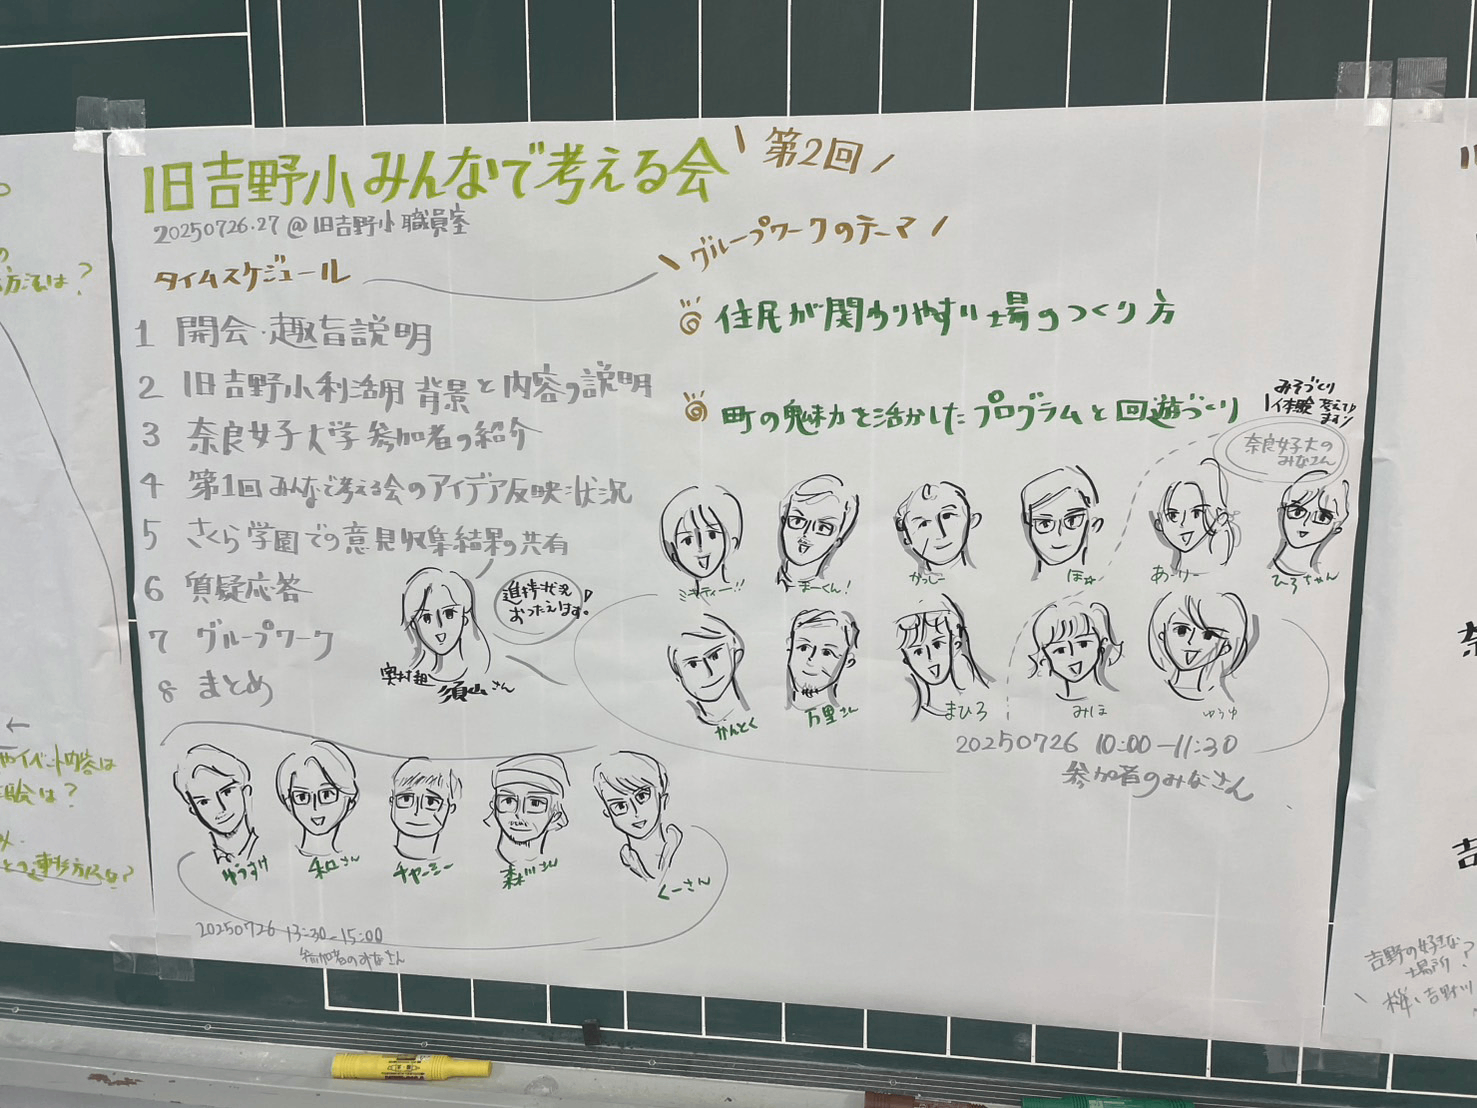 旧吉野小みんなで考える会
第2回
20250726.27@旧吉野小職員室
タイムスケジュール
1 開会・趣旨説明
2 旧吉野小利活用 背景と内容の説明
3 奈良女子大学参加者の紹介
4 第1回みんなで考える会のアイデア反映状況
5 さくら学園での意見収集結果の共有
6 質疑応答
7 グループワーク
8 まとめ
進捗状況
おつたえします!
須山さん
グループワークのテーマ
住民が関わりやすい場のつくり方
町の魅力を活かしたプログラムと回遊づくり
みそづくり
体験 考えて
ます
奈良女子大の
みなさん
ミッティー!!
まーくん!
かっしー
ほ
あーりー
ひろちゃん
かんとく
万里さん
まひろ
みほ
ゆうゆ
20250726 10:00-11:30
参加者のみなさん
ゆうすけ
和口さん
チャーミー
森川さん
くーさん
20250726 13:30-15:00
参加者のみなさん
の
方法は?
やイベント内容は
験は?
み
吉
吉野の好きな
場所?
桜、吉野川